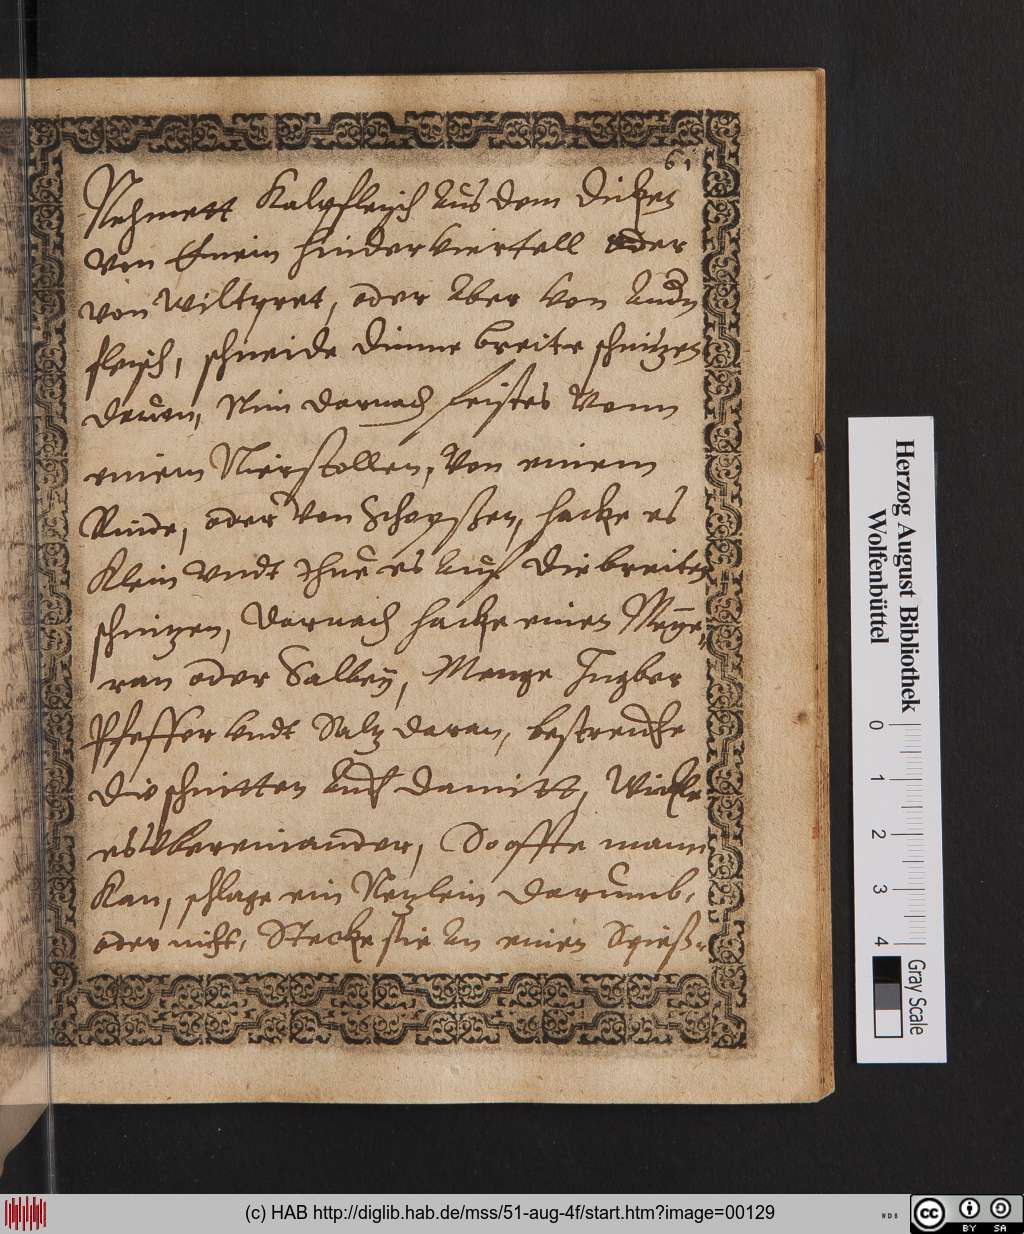 61
Nehmett Kalpfleisch Aus dem Dicken
von Einein hinder viertell oder
von Wiltpret, oder Aber von Andn
fleisch, schneide dinne breite schnitzen
dauon, Nim darnach feistes Vonn
einem Nierstollen, Von einem
Rinde, oder von Schopßen, hacke es
Klein vndt Thue es Auf die breiten
schnitzen, Darnach hacke einen Meye,
ran oder Salbey, Menge Ingber
Pfeffer vndt Saltz daran, bestreiche
die schnitten Auch damitt, Wickle
es Vbereinander, So offte mann
Kan, schlage ein Netzlein darumb,
oder nicht, Stecke sie An einen Spieß
Herzog August Bibliothek
Wolfenbüttel
0 1 2 3 4
Gray Scale
(c) HAB http://diglib.hab.de/mss/51-aug-4f/start.htm?image=00129
cc BY SA